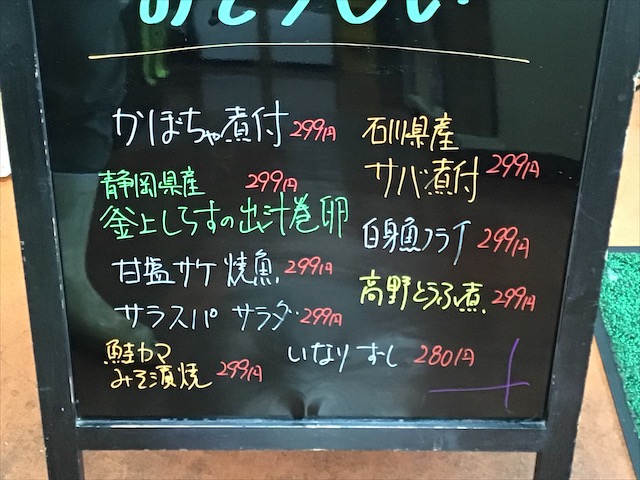 かぼちゃ煮付 299円
静岡県産 299円
釜上しらすの出汁巻卵
甘塩サケ焼魚 299円
サラスパサラダ 299円
鮭カマ
みそ漬焼 299円
石川県産
サバ煮付 299円
白身魚フライ 299円
高野とうふ煮 299円
いなりずし 280円